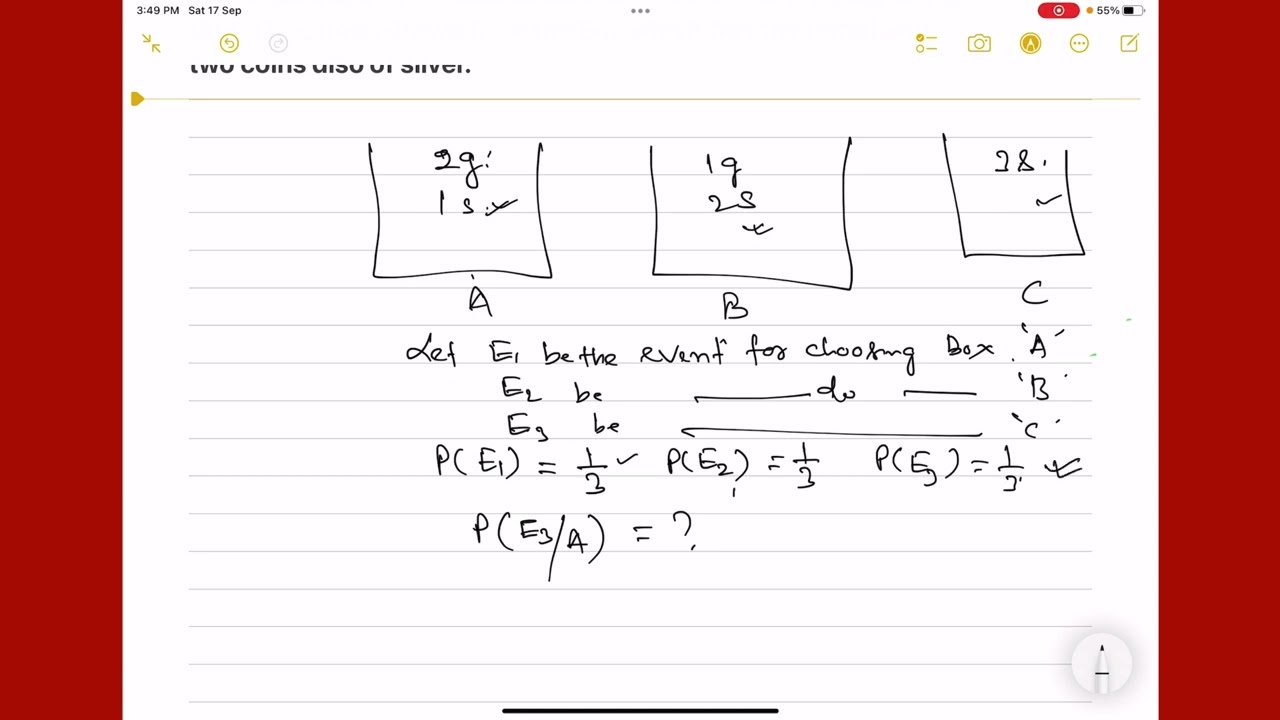 3:49 PM Sat 17 Sep 55%
two coins also of silver.
2g 1g 3s.
1s. 2s
A B C
Let E1 be the event for choosing Box 'A'
E2 be —— do —— 'B'
E3 be —— 'C'
P(E1) = 1/3 P(E2) = 1/3 P(E3) = 1/3
P(E3/A) = ?